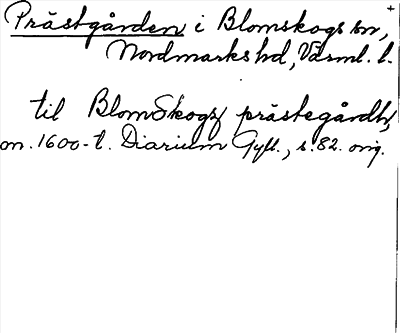 Prästgården i Blomskogs sn,
Nordmarks hd, Värml. l.
til BlomSkogz prästegårdh,
om. 1600-t. Diarium Gyll., s. 82. orig.